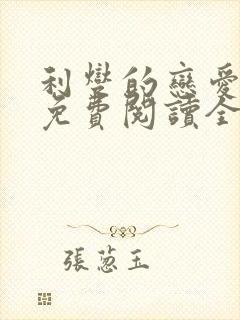 利彎的戀愛
免費閱讀全
張蔥玉